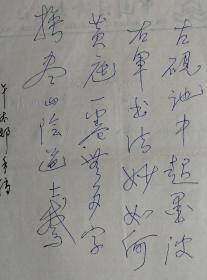 古砚池中起墨波
右军书法妙如何
黄庭一卷无多字
换尽山阴道士鹅